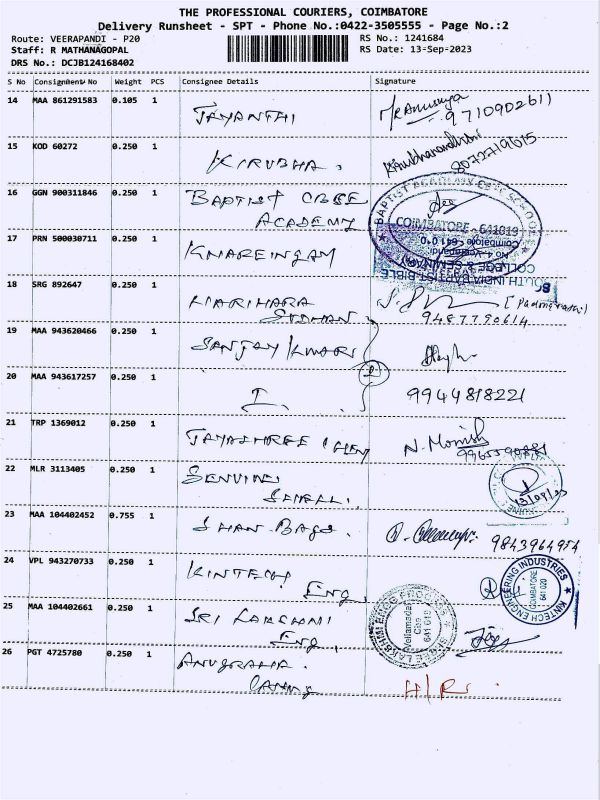 THE PROFESSIONAL COURIERS, COIMBATORE
Delivery Runsheet - SPT - Phone No.:0422-3505555 - Page No.:2
Route: VEERAPANDI - P20
RS No.: 1241684
Staff: R MATHANAGOPAL
RS Date: 13-Sep-2023
DRS No.: DCJB124168402
S No Consignment No Weight PCS Consignee Details Signature
14 MAA 861291583 0.105 1
JAYANTHI
9710902611
15 KOD 60272 0.250 1
KIRUBHA.
8072719615
16 GGN 900311846 0.250 1
BAPTIST CBSE
ACADEMY
BAPTIST ACADEMY CBSE SCHOOL
COIMBATORE - 641019
17 PRN 500030711 0.250 1
SOUTH INDIA BAPTIST BIBLE
COLLEGE & SEMINARY
Coimbatore - 641 019
18 SRG 892647 0.250 1
HARIHARA
SUDHAN
9487790614
19 MAA 943620466 0.250 1
SANJAY KUMAR
20 MAA 943617257 0.250 1
I.
9944818221
21 TRP 1369012 0.250 1
22 MLR 3113405 0.250 1
13/09/23
23 MAA 104402452 0.755 1
9843964954
24 VPL 943270733 0.250 1
KINTECH
Eng
KINTECH ENGINEERING INDUSTRIES
COIMBATORE
641 020
25 MAA 104402661 0.250 1
SRI LAKSHMI
Eng
641 019
26 PGT 4725780 0.250 1
ANUGRAHA.
H/R.